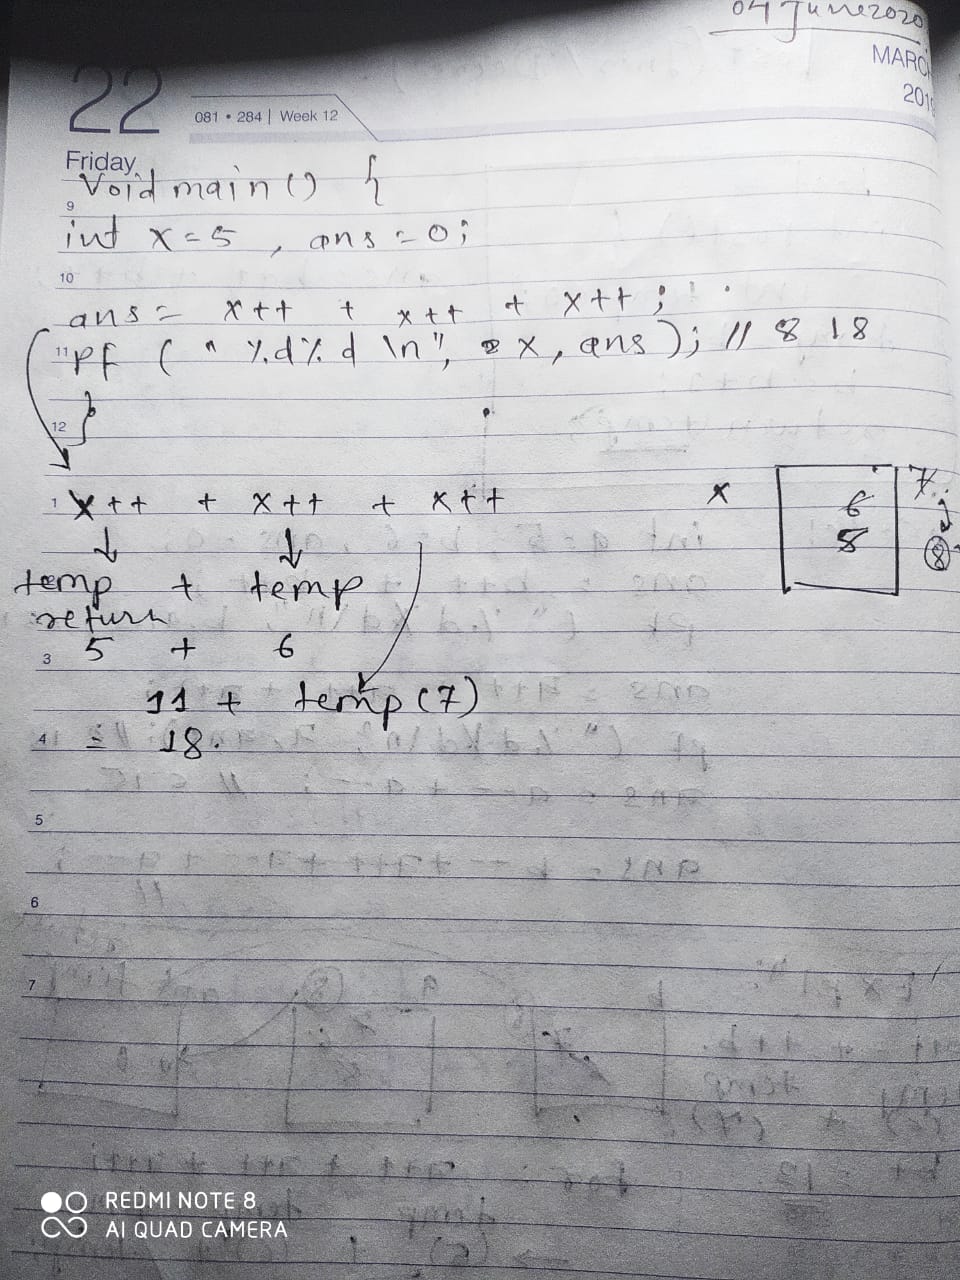 04 June 2020
MARC
201
22
081 • 284 | Week 12
Friday
Void main () {
9
int x = 5 , ans = 0;
10
ans = x++ + x++ + x++ ;
11 pf ( " %d% d \n", x, ans ); // 8 18
12 }
1 x++ + x++ + x++ x 6 7
8 8
temp + temp
return
3 5 + 6
11 + temp (7)
4 = 18.
5
6
7
REDMI NOTE 8
AI QUAD CAMERA